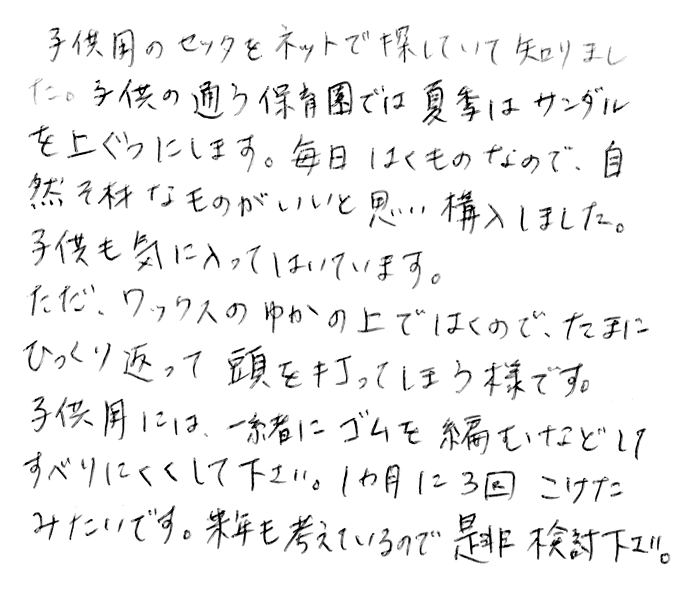 子供用のセッタをネットで探していて知りまし
た。子供の通う保育園では夏季はサンダル
を上ぐつにします。毎日はくものなので、自
然そ材なものがいいと思い購入しました。
子供も気に入ってはいています。
ただ、ワックスのゆかの上ではくので、たまに
ひっくり返って頭を打ってしまう様です。
子供用には、一緒にゴムを編むなどして
すべりにくくして下さい。1カ月に3回こけた
みたいです。来年も考えているので是非検討下さい。